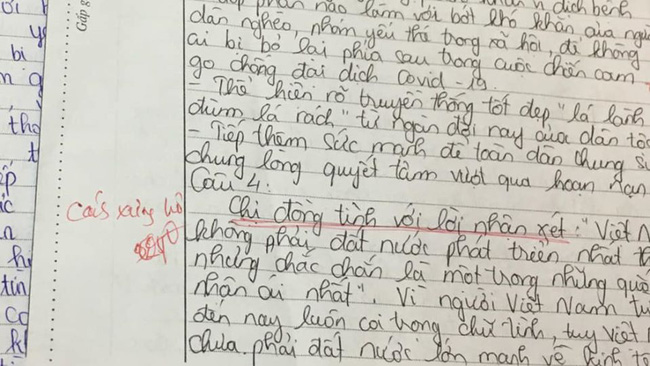 dịch bệnh
phần nào làm vơi bớt khó khăn của ngư
dân nghèo, nhóm yếu thế trong xã hội, để không
ai bị bỏ lại phía sau trong cuộc chiến cam
go chống đại dịch Covid-19.
- Thể hiện rõ truyền thống tốt đẹp "lá lành
đùm lá rách" từ ngàn đời nay của dân tộc
- Tiếp thêm sức mạnh để toàn dân chung s
chung lòng quyết tâm vượt qua hoạn nạn
Câu 4:
Cách xưng hô
Chị đồng tình với lời nhận xét: "Việt N
không phải đất nước phát triển nhất t
nhưng chắc chắn là một trong những quố
nhân ái nhất". Vì người Việt Nam từ
đến nay luôn coi trọng chữ tình, tuy Việt
chưa phải đất nước lớn mạnh về kinh tế
Gấp g